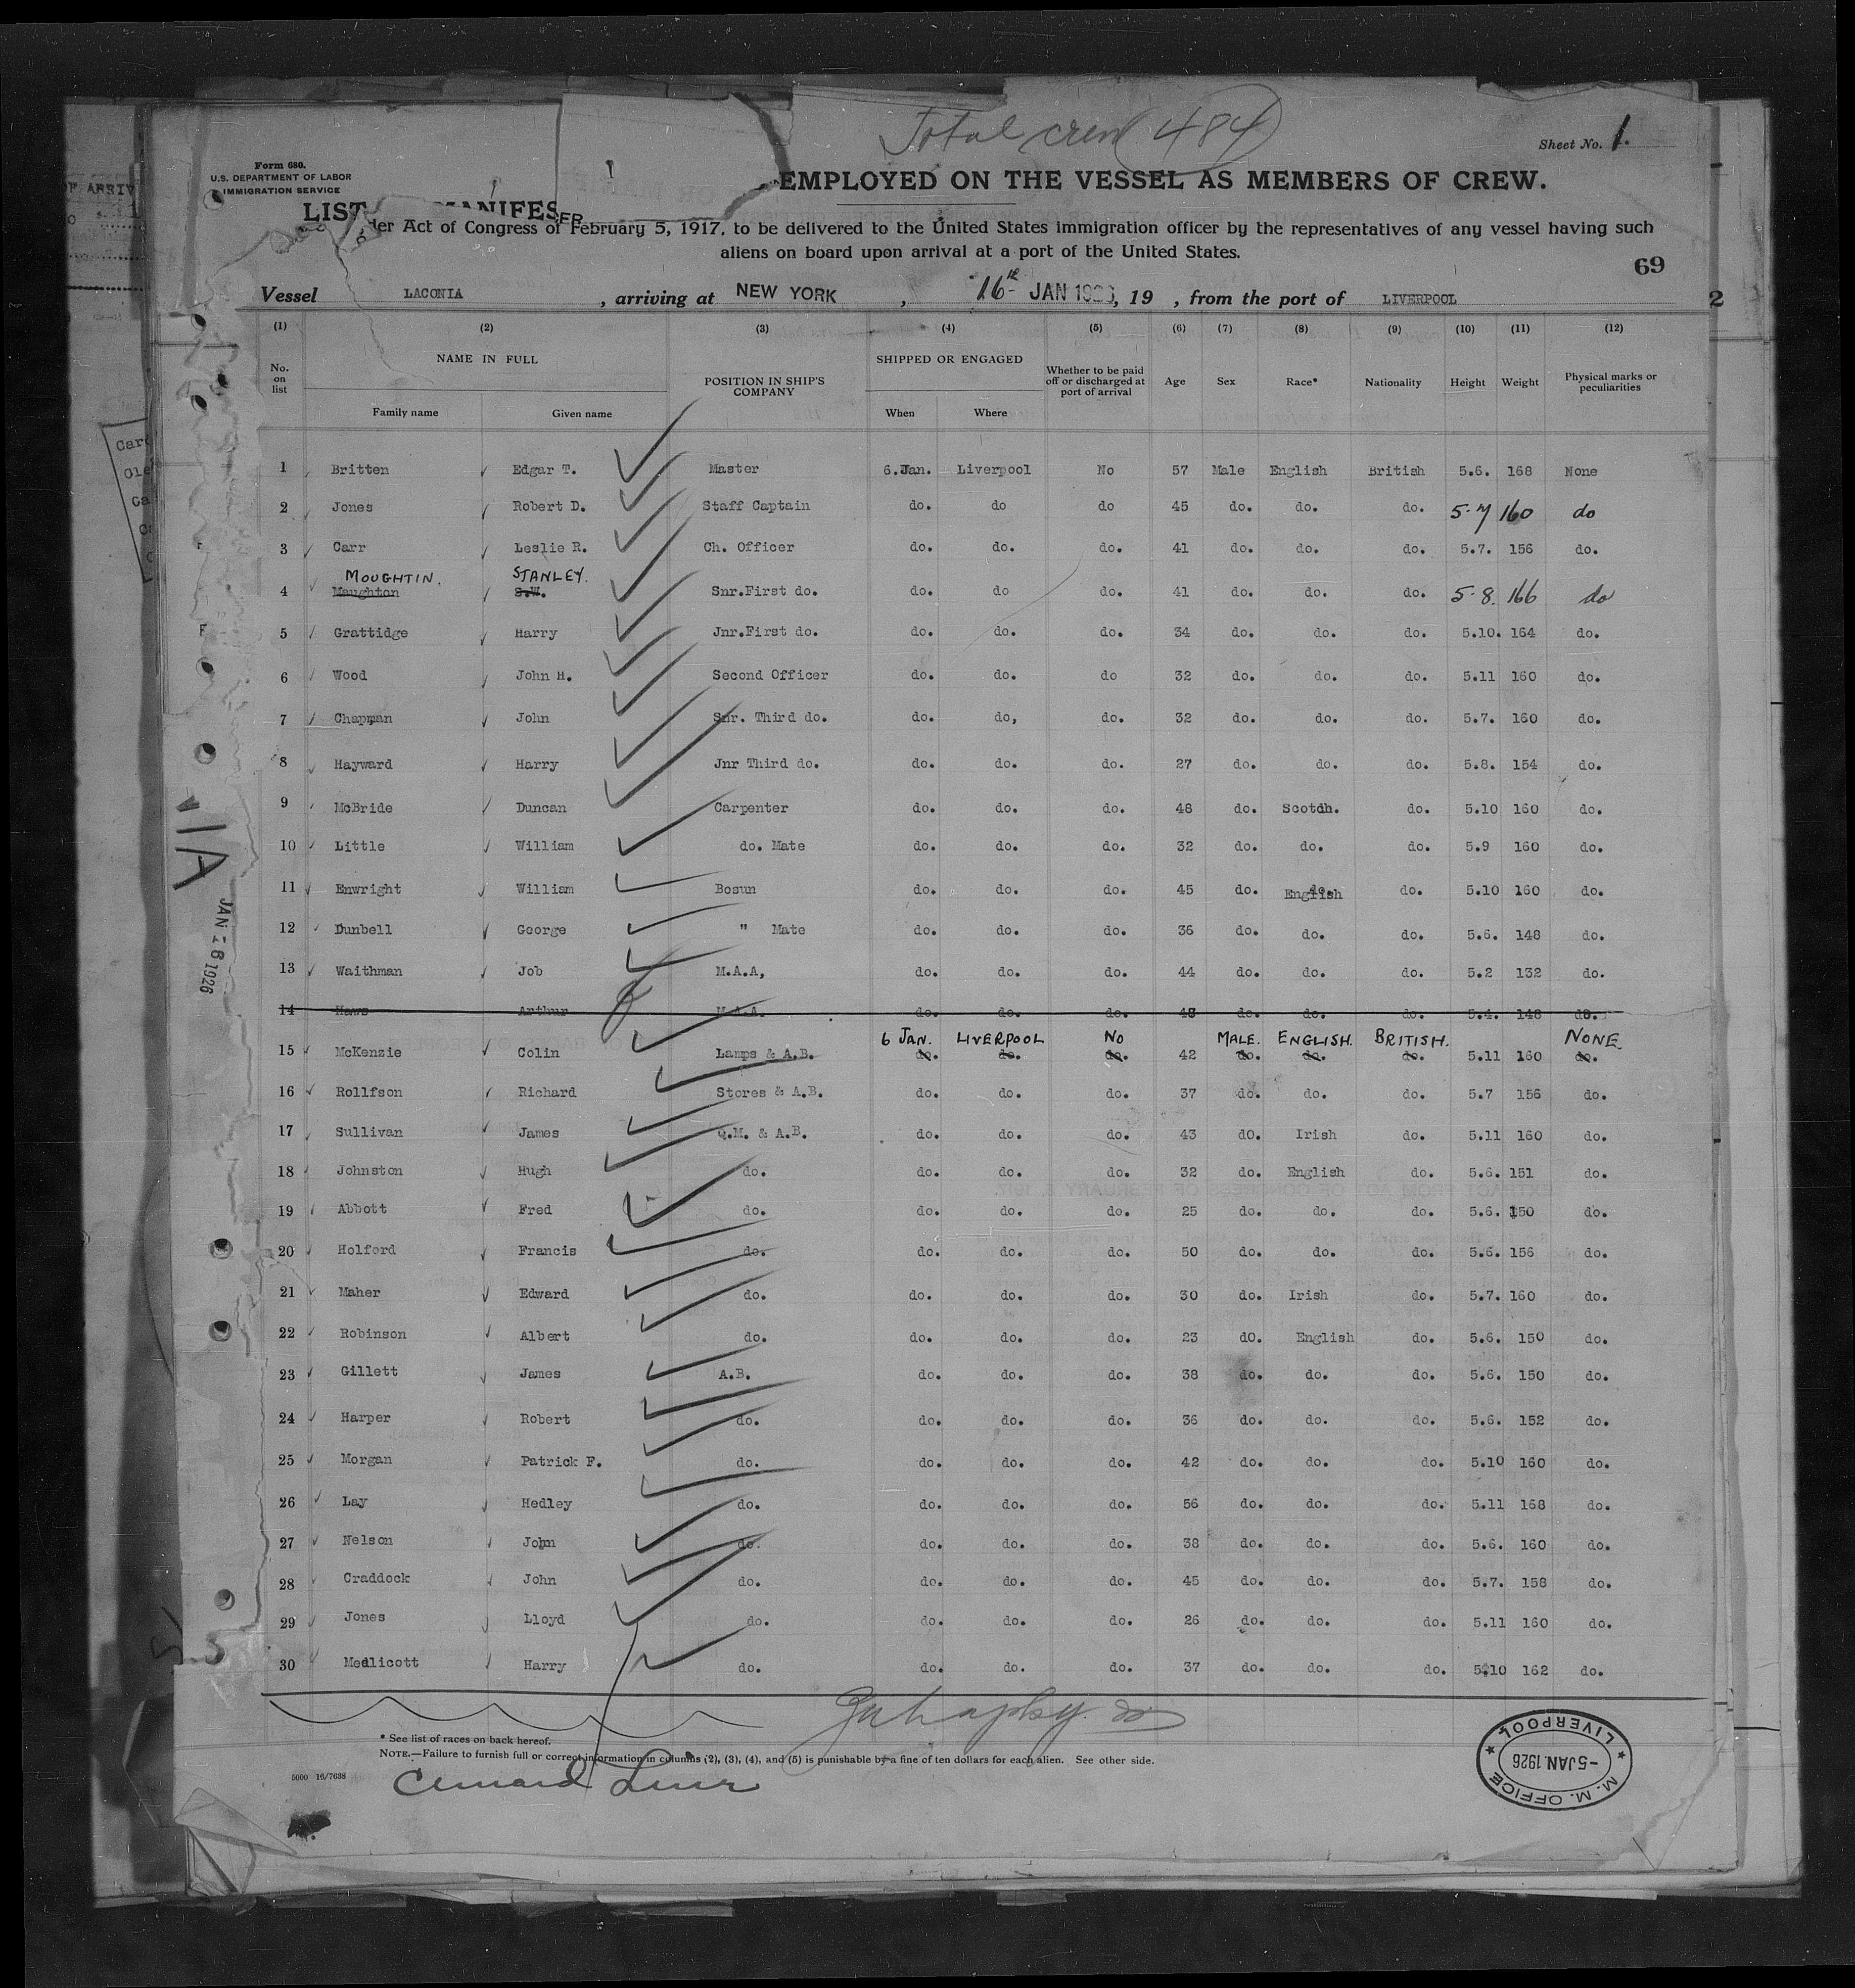 Total crew 484
Sheet No. 1.
Form 680.
U.S. DEPARTMENT OF LABOR
IMMIGRATION SERVICE
LIST MANIFES
EMPLOYED ON THE VESSEL AS MEMBERS OF CREW.
Act of Congress of February 5, 1917, to be delivered to the United States immigration officer by the representatives of any vessel having such
aliens on board upon arrival at a port of the United States.
69
Vessel LACONIA, arriving at NEW YORK, 16th JAN 1926, 19 , from the port of LIVERPOOL
2
(1) (2) (3) (4) (5) (6) (7) (8) (9) (10) (11) (12)
No. on list NAME IN FULL POSITION IN SHIP'S COMPANY SHIPPED OR ENGAGED Whether to be paid off or discharged at port of arrival Age Sex Race* Nationality Height Weight Physical marks or peculiarities
Family name Given name When Where
1 Britten Edgar T. Master 6.Jan. Liverpool No 57 Male English British 5.6. 168 None
2 Jones Robert D. Staff Captain do. do do 45 do. do. do. 5.7 160 do
3 Carr Leslie R. Ch. Officer do. do. do. 41 do. do. do. 5.7. 156 do.
MOUGHTIN. STANLEY.
4 Maughton S.W. Snr.First do. do. do do. 41 do. do. do. 5.8. 166 do
5 Grattidge Harry Jnr.First do. do. do. do. 34 do. do. do. 5.10. 164 do.
6 Wood John H. Second Officer do. do. do 32 do. do. do. 5.11 160 do.
7 Chapman John Snr. Third do. do. do, do. 32 do. do. do. 5.7. 160 do.
8 Hayward Harry Jnr Third do. do. do. do. 27 do. do. do. 5.8. 154 do.
9 McBride Duncan Carpenter do. do. do. 48 do. Scotch. do. 5.10 160 do.
10 Little William do. Mate do. do. do. 32 do. do. do. 5.9 160 do.
11 Enwright William Bosun do. do. do. 45 do. English do. 5.10 160 do.
12 Dunbell George " Mate do. do. do. 36 do. do. do. 5.6. 148 do.
13 Waithman Job M.A.A, do. do. do. 44 do. do. do. 5.2 132 do.
14 Haws Arthur M.A.A. do. do. do. do. do. do. 5.4. 148 do.
6 JAN. LIVERPOOL NO MALE. ENGLISH. BRITISH. NONE.
15 McKenzie Colin Lamps & A.B. do. do. do. 42 do. do. do. 5.11 160 do.
16 Rollfson Richard Stores & A.B. do. do. do. 37 do. do. do. 5.7 156 do.
17 Sullivan James Q.M. & A.B. do. do. do. 43 do. Irish do. 5.11 160 do.
18 Johnston Hugh do. do. do. do. 32 do. English do. 5.6. 151 do.
19 Abbott Fred do. do. do. do. 25 do. do. do. 5.6. 150 do.
20 Holford Francis do. do. do. do. 50 do. do. do. 5.6. 156 do.
21 Maher Edward do. do. do. do. 30 do. Irish do. 5.7. 160 do.
22 Robinson Albert do. do. do. do. 23 do. English do. 5.6. 150 do.
23 Gillett James A.B. do. do. do. 38 do. do. do. 5.6. 150 do.
24 Harper Robert do. do. do. do. 36 do. do. do. 5.6. 152 do.
25 Morgan Patrick F. do. do. do. do. 42 do. do. do. 5.10 160 do.
26 Lay Hedley do. do. do. do. 56 do. do. do. 5.11 168 do.
27 Nelson John do. do. do. do. 38 do. do. do. 5.6. 160 do.
28 Craddock John do. do. do. do. 45 do. do. do. 5.7. 158 do.
29 Jones Lloyd do. do. do. do. 26 do. do. do. 5.11 160 do.
30 Medlicott Harry do. do. do. do. 37 do. do. do. 5.10 162 do.
* See list of races on back hereof.
NOTE.—Failure to furnish full or correct information in columns (2), (3), (4), and (5) is punishable by a fine of ten dollars for each alien. See other side.
5000 16/7638
Cunard Line
M. M. OFFICE
-5 JAN. 1926
LIVERPOOL
JAN 16 1926